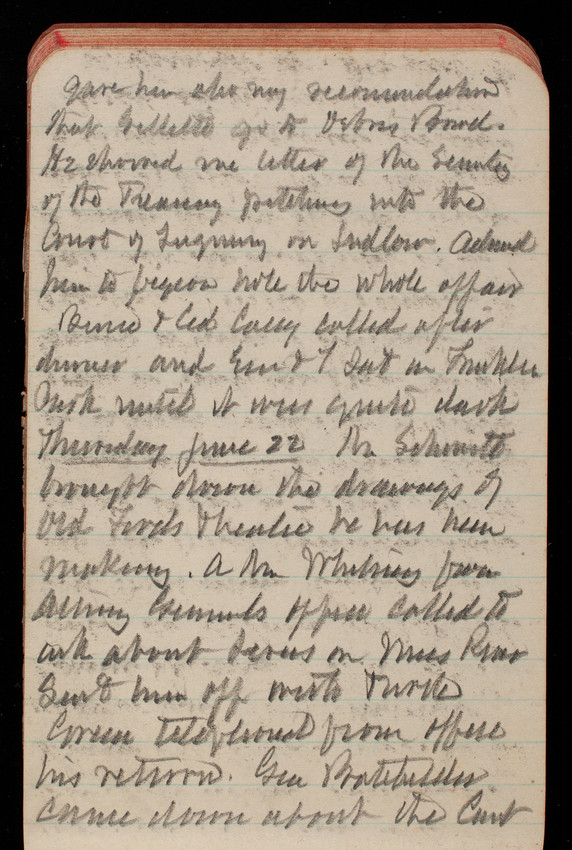 gave him also my recommendation
that Gillette go to Debris Board.
He showed me letter of the Secretary
of the Treasury pitching into the
Court of Inquiry on Ludlow. Advised
him to pigeon hole the whole affair
Bernie & Ced Casey called after
dinner and Em & I sat in Franklin
Park until it was quite dark
Thursday June 22 Mr Schmitt
brought down the drawings of
Old Fords Theatre he has been
making. A Mr Whiting from
Attorney Generals office called to
ask about levees on Miss River
Sent him off with Turtle
Green telephoned from office
his return. Gen Batchelder
came down about the